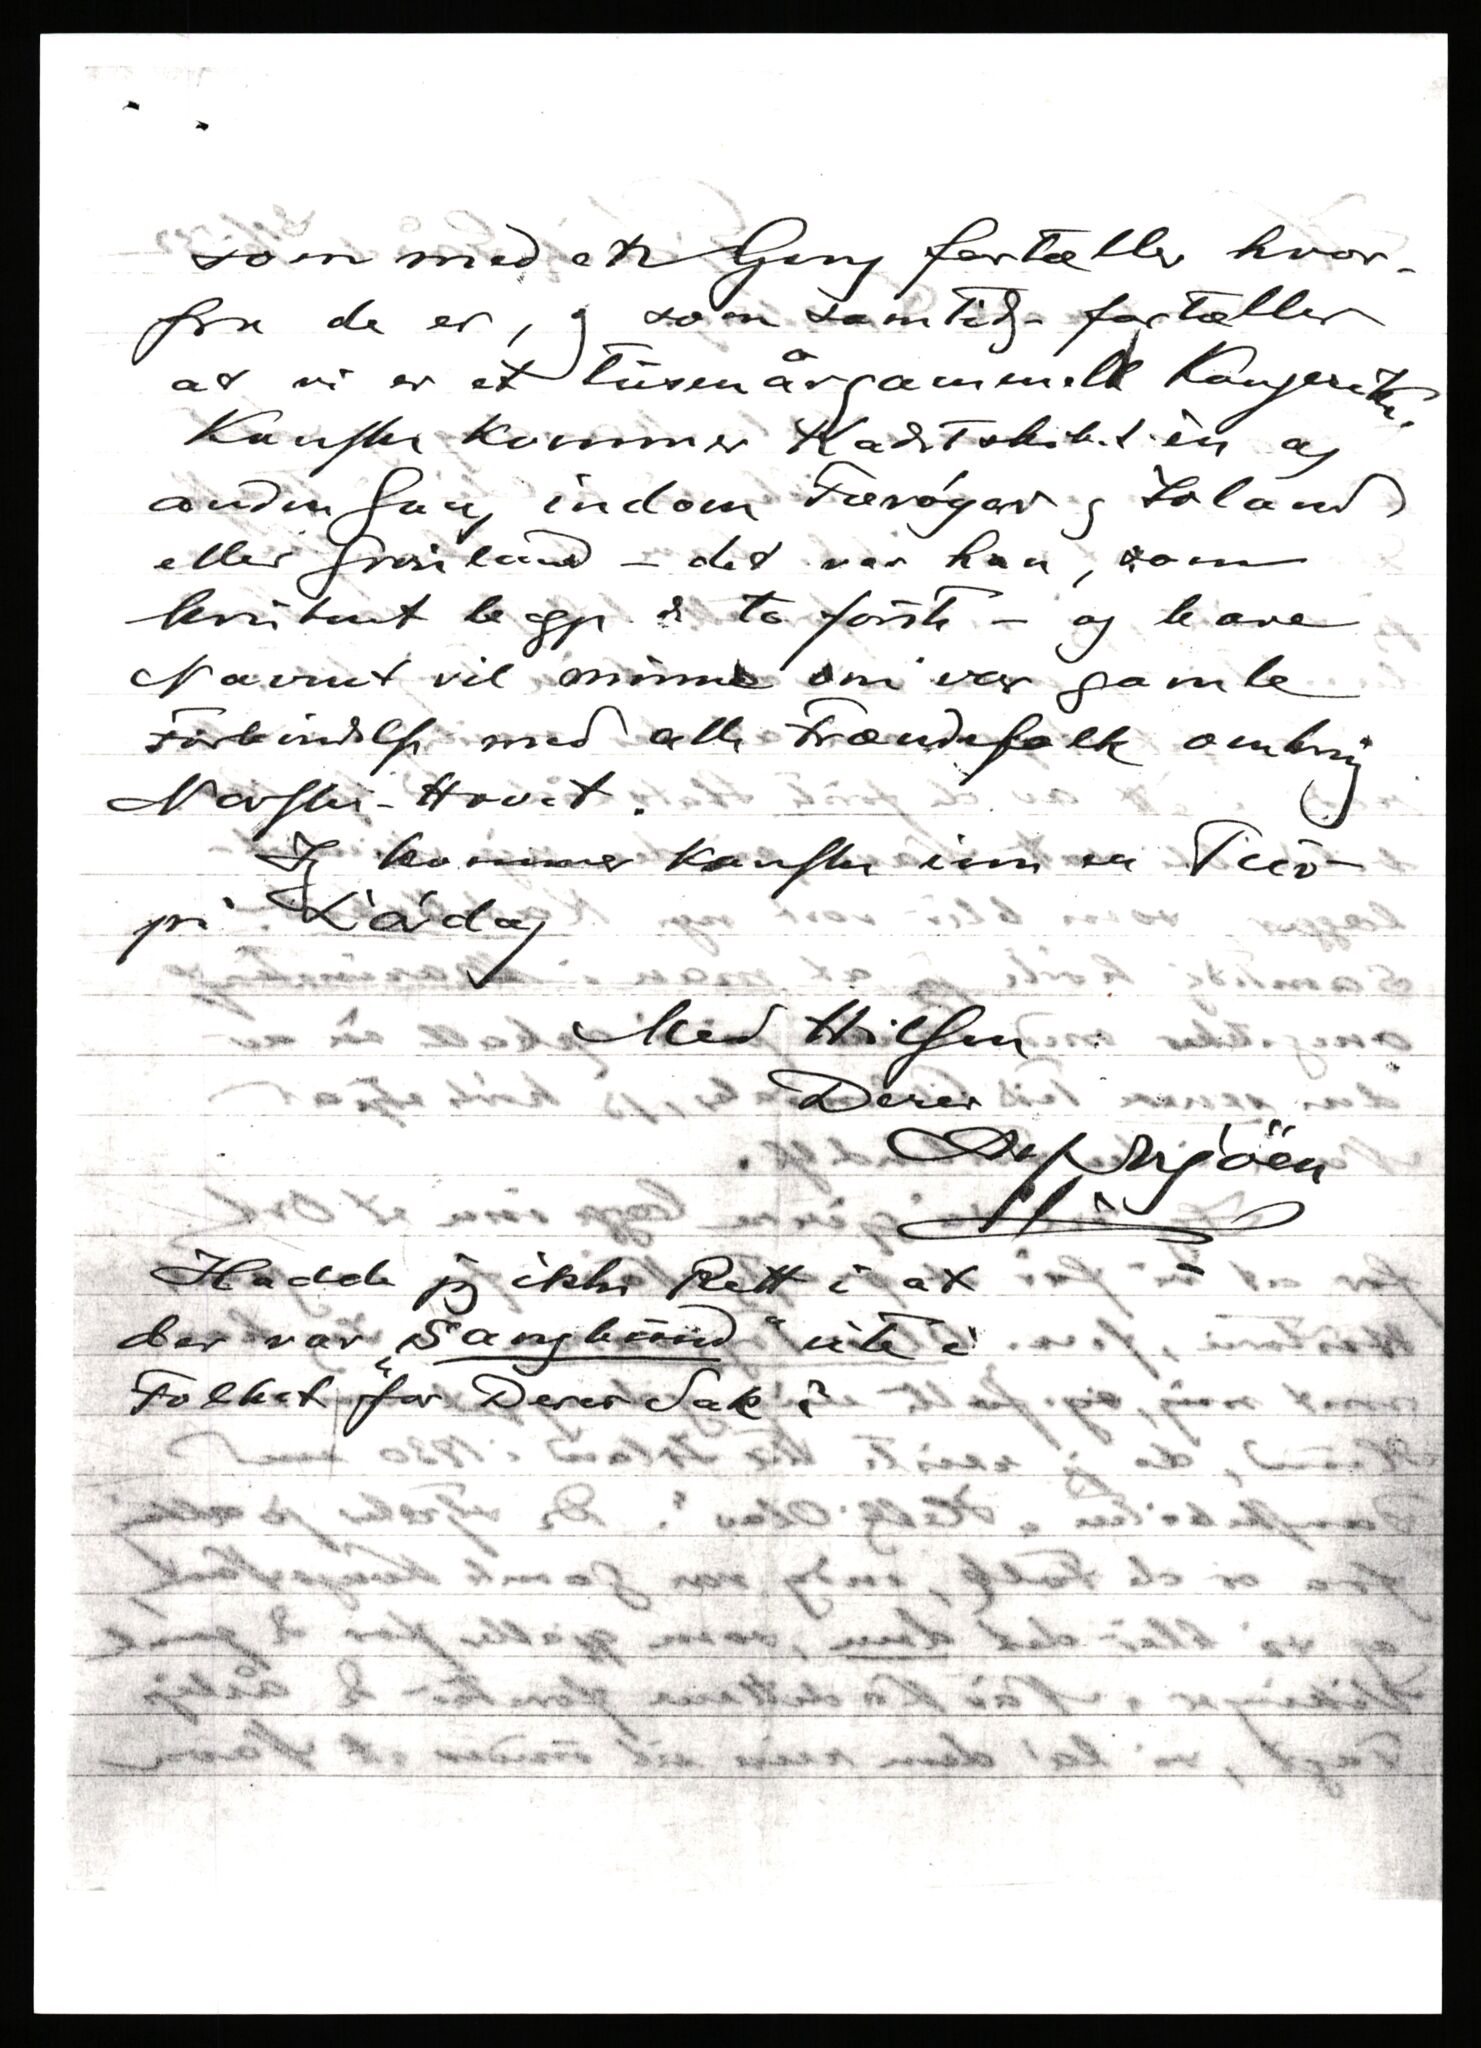 som med et Gang fortæller hvor-
fra de er, og som samtidig fortæller
at vi er et tusenårgammelt Kongerike.
Kanske kommer Kadetskibet en og
anden Gang indom Færøyar og Island
eller Grønland – det var han, som
kristnet begge de to første – og bare
Navnet vil minne om vor gamle
Forbindelse med alle Frændefolk omkring
Norske-Havet.
Jeg kommer kanske inn en Tur
på Lørdag
Med Hilsen
Deres
Hadde jeg ikke Rett i at
der var „Sangbund“ ute i
Folket for Deres Sak?